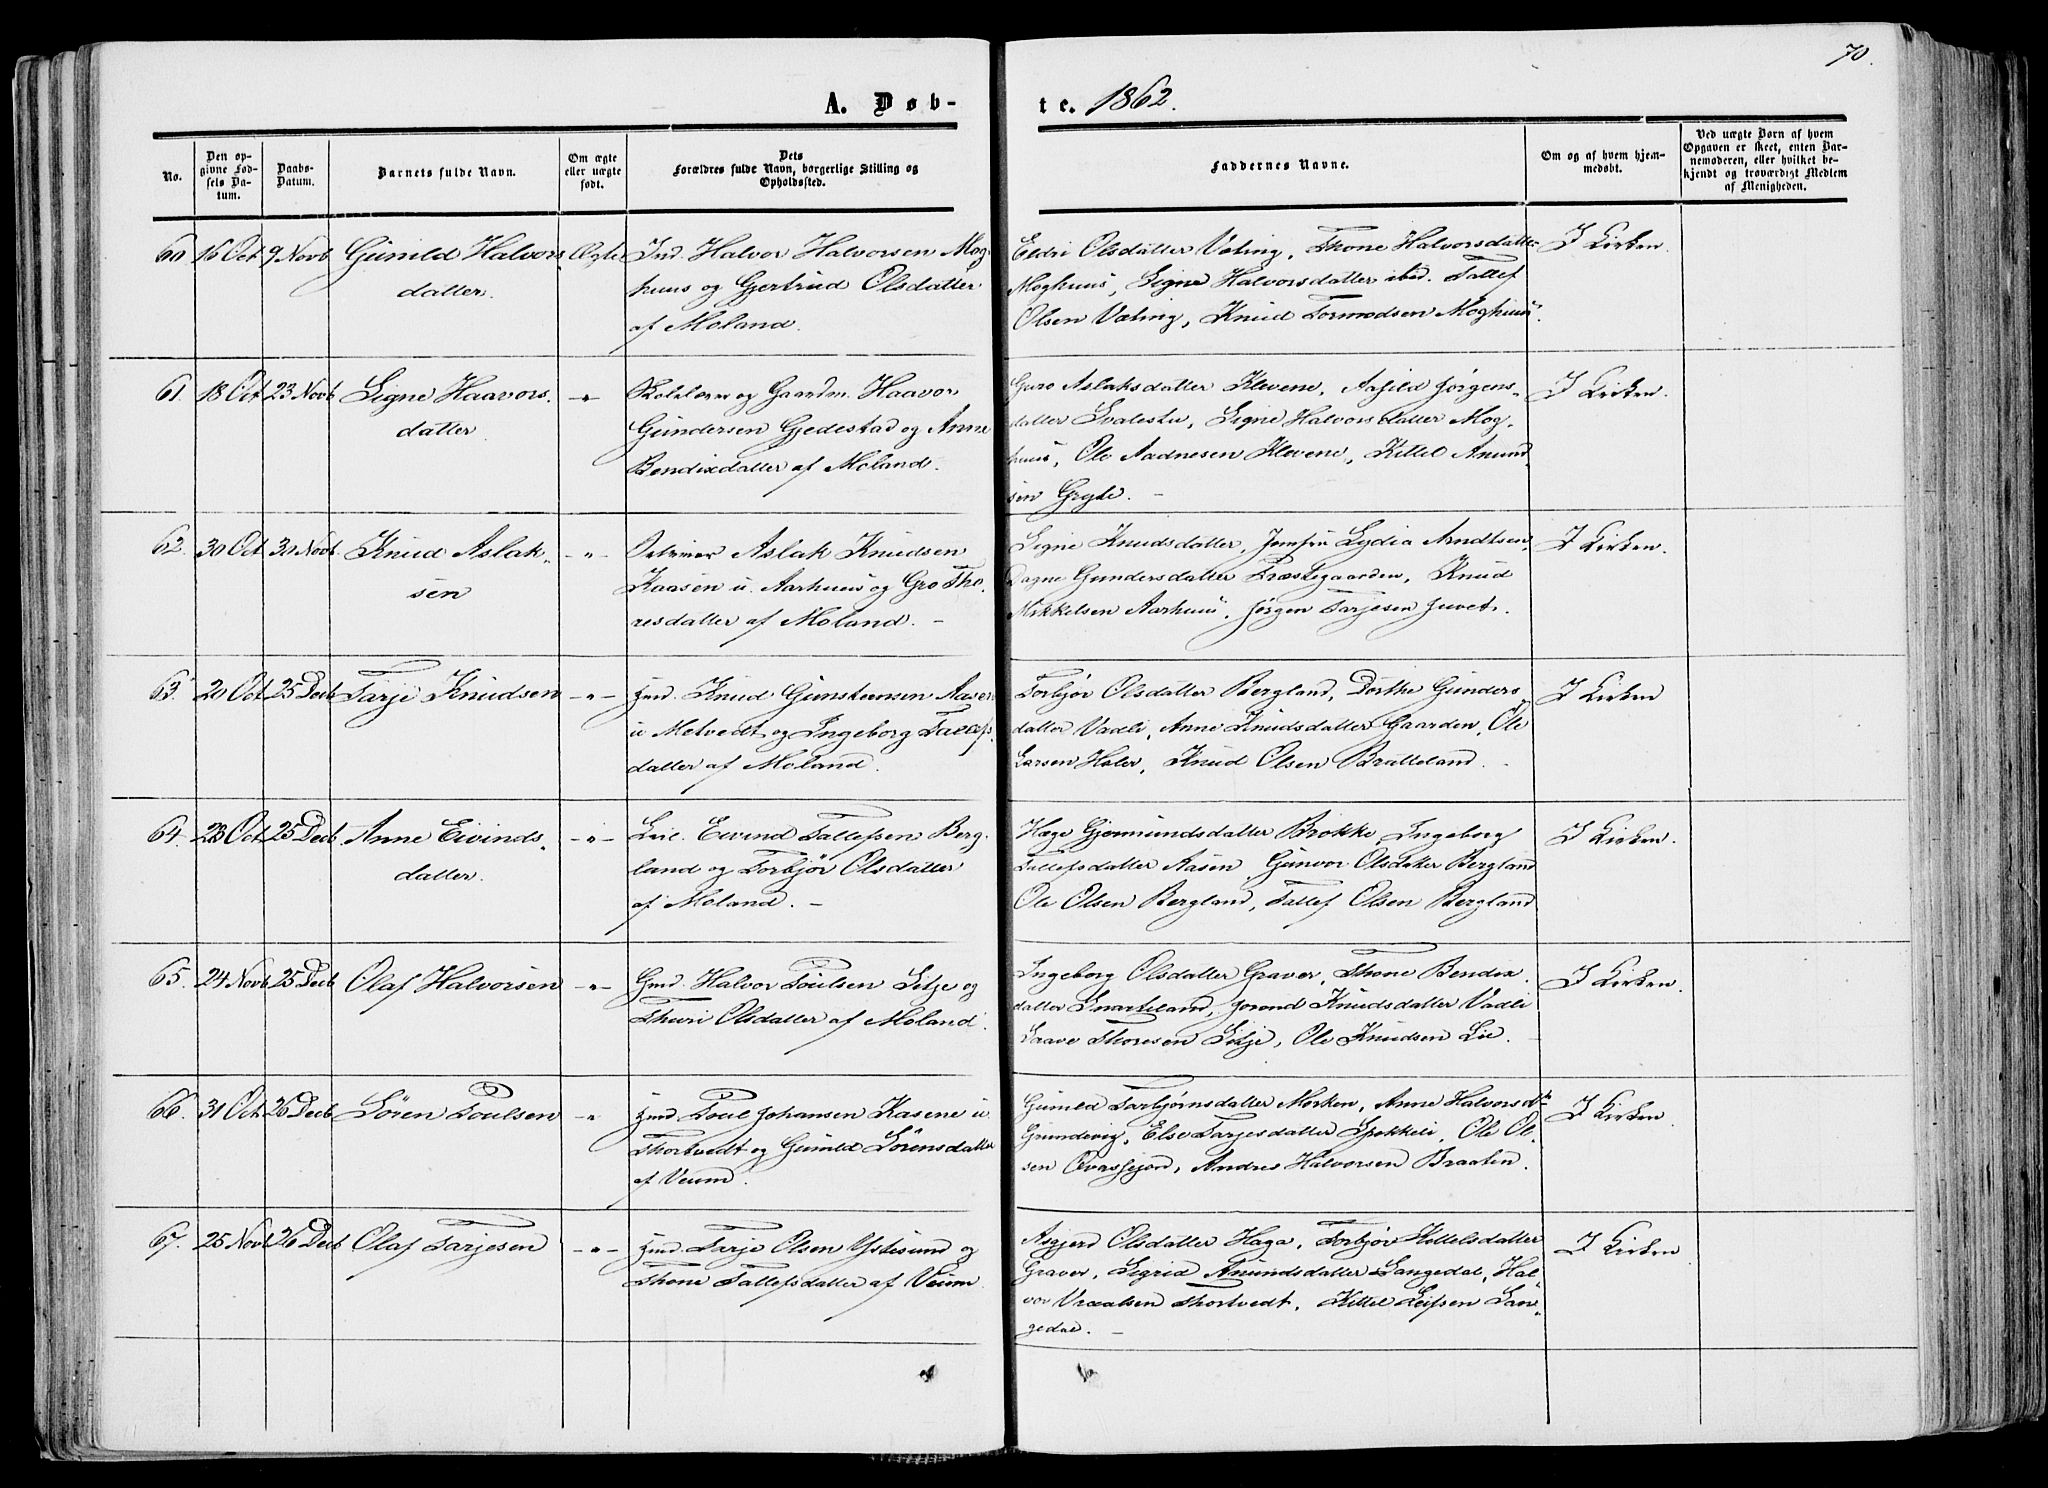 70.
A. Døb-
te. 1862.
No.
Den op-
givne Fød-
sels Da-
tum.
Daabs-
Datum.
Barnets fulde Navn.
Om ægte
eller uægte
født.
Dets
Forældres fulde Navn, borgerlige Stilling og
Opholdssted.
Faddernes Navne.
Om og af hvem hjem-
medøbt.
Ved uægte Børn af hvem
Opgaven er skeet, enten Bar-
nemoderen, eller hvilket be-
kjendt og troværdigt Medlem
af Menigheden.
60 16 Oct 9 Novb Gunild Halvors
datter.
Ægte
Ind. Halvor Halvorsen Mog
huus og Gjertrud Olsdatter
af Moland.
Eldri Olsdatter Væting, Thone Halvorsdatter
Moghuus, Signe Halvorsdatter ibid. Tallef
Olsen Væting, Knud Tormodsen Moghuus.
I Kirken.
61. 18 Oct 23 Novb Signe Haavors.
datter.
-"-
Skolelærer og Gaardm. Haavor
Gundersen Gjedestad og Anne
Bendixdatter af Moland.
Guro Aslaksdatter Klevene, Aasild Jørgens-
datter Svalestu, Signe Halvorsdatter Mog-
huus, Ole Aadnesen Klevene, Kittel Anund
sen Gryte. -
I Kirken.
62. 30 Oct 30 Novb. Knud Aslak-
sen
-"-
Aslak Knudsen
Kaasen u. Aarhuus og Gro Tho-
resdatter af Moland. -
Signe Knudsdatter, Jomfru Lydia Arndtsen,
Dagne Gundersdatter Præstegaarden, Knud
Mikkelsen Aarhuus, Jørgen Tarjesen Juvet.
I Kirken.
63. 20 Oct 25 Decb Tarje Knudsen
-"-
Hmd. Knud Gunsteensen Aasen
u Metvedt og Ingeborg Tallefs.
datter af Moland.
Torbjør Olsdatter Bergland, Dorthe Gunders
datter Vadli, Anne Knudsdatter Gaarden, Ole
Larsen Holer, Knud Olsen Brutteland. -
I Kirken
64. 23 Oct. 25 Decb. Anne Eivinds-
datter.
-"-
Leil. Eivind Tallefsen Berg-
land og Torbjör Olsdatter
af Moland. -
Hæge Gjermundsdatter Brokke, Ingeborg
Tallefsdatter Aasen, Gunvor Olsdatter Bergland
Ole Olsen Bergland, Tallef Olsen Bergland
I Kirken.
65. 24 Novb 25 Decb Olaf Halvorsen
-"-
Gmd. Halvor Poulsen Sitje og
Thuri Olsdatter af Moland.
Ingeborg Olsdatter Graver, Thone Bendix
datter Snarteland, Jorond Knudsdatter Vadli
Saave Thoresen Sitje, Ole Knudsen Lie.
I Kirken.
66. 31 Oct 26 Decb Sören Poulsen
-"-
Hmd. Poul Johansen Kasene u.
Thortvedt og Gunild Sörensdatter
af Veum.
Gunild Torbjørnsdatter Morken, Anne Halvorsdtr
Grundevig, Else Tarjesdatter Spokkeli, Ole Ol-
sen Qvasfjord, Andres Halvorsen Braaten.
I Kirken.
67. 25 Novb 26 Decb Olaf Tarjesen
-"-
Hmd. Tarje Olsen Ystesund og
Thone Tallefsdatter af Veum.
Asgjerd Olsdatter Haga, Torbjör Kittelsdatter
Graver, Sigrid Anundsdatter Langedal, Hal-
vor Vraalsen Thortvedt, Kittel Leifsen Lan-
gedal. -
I Kirken